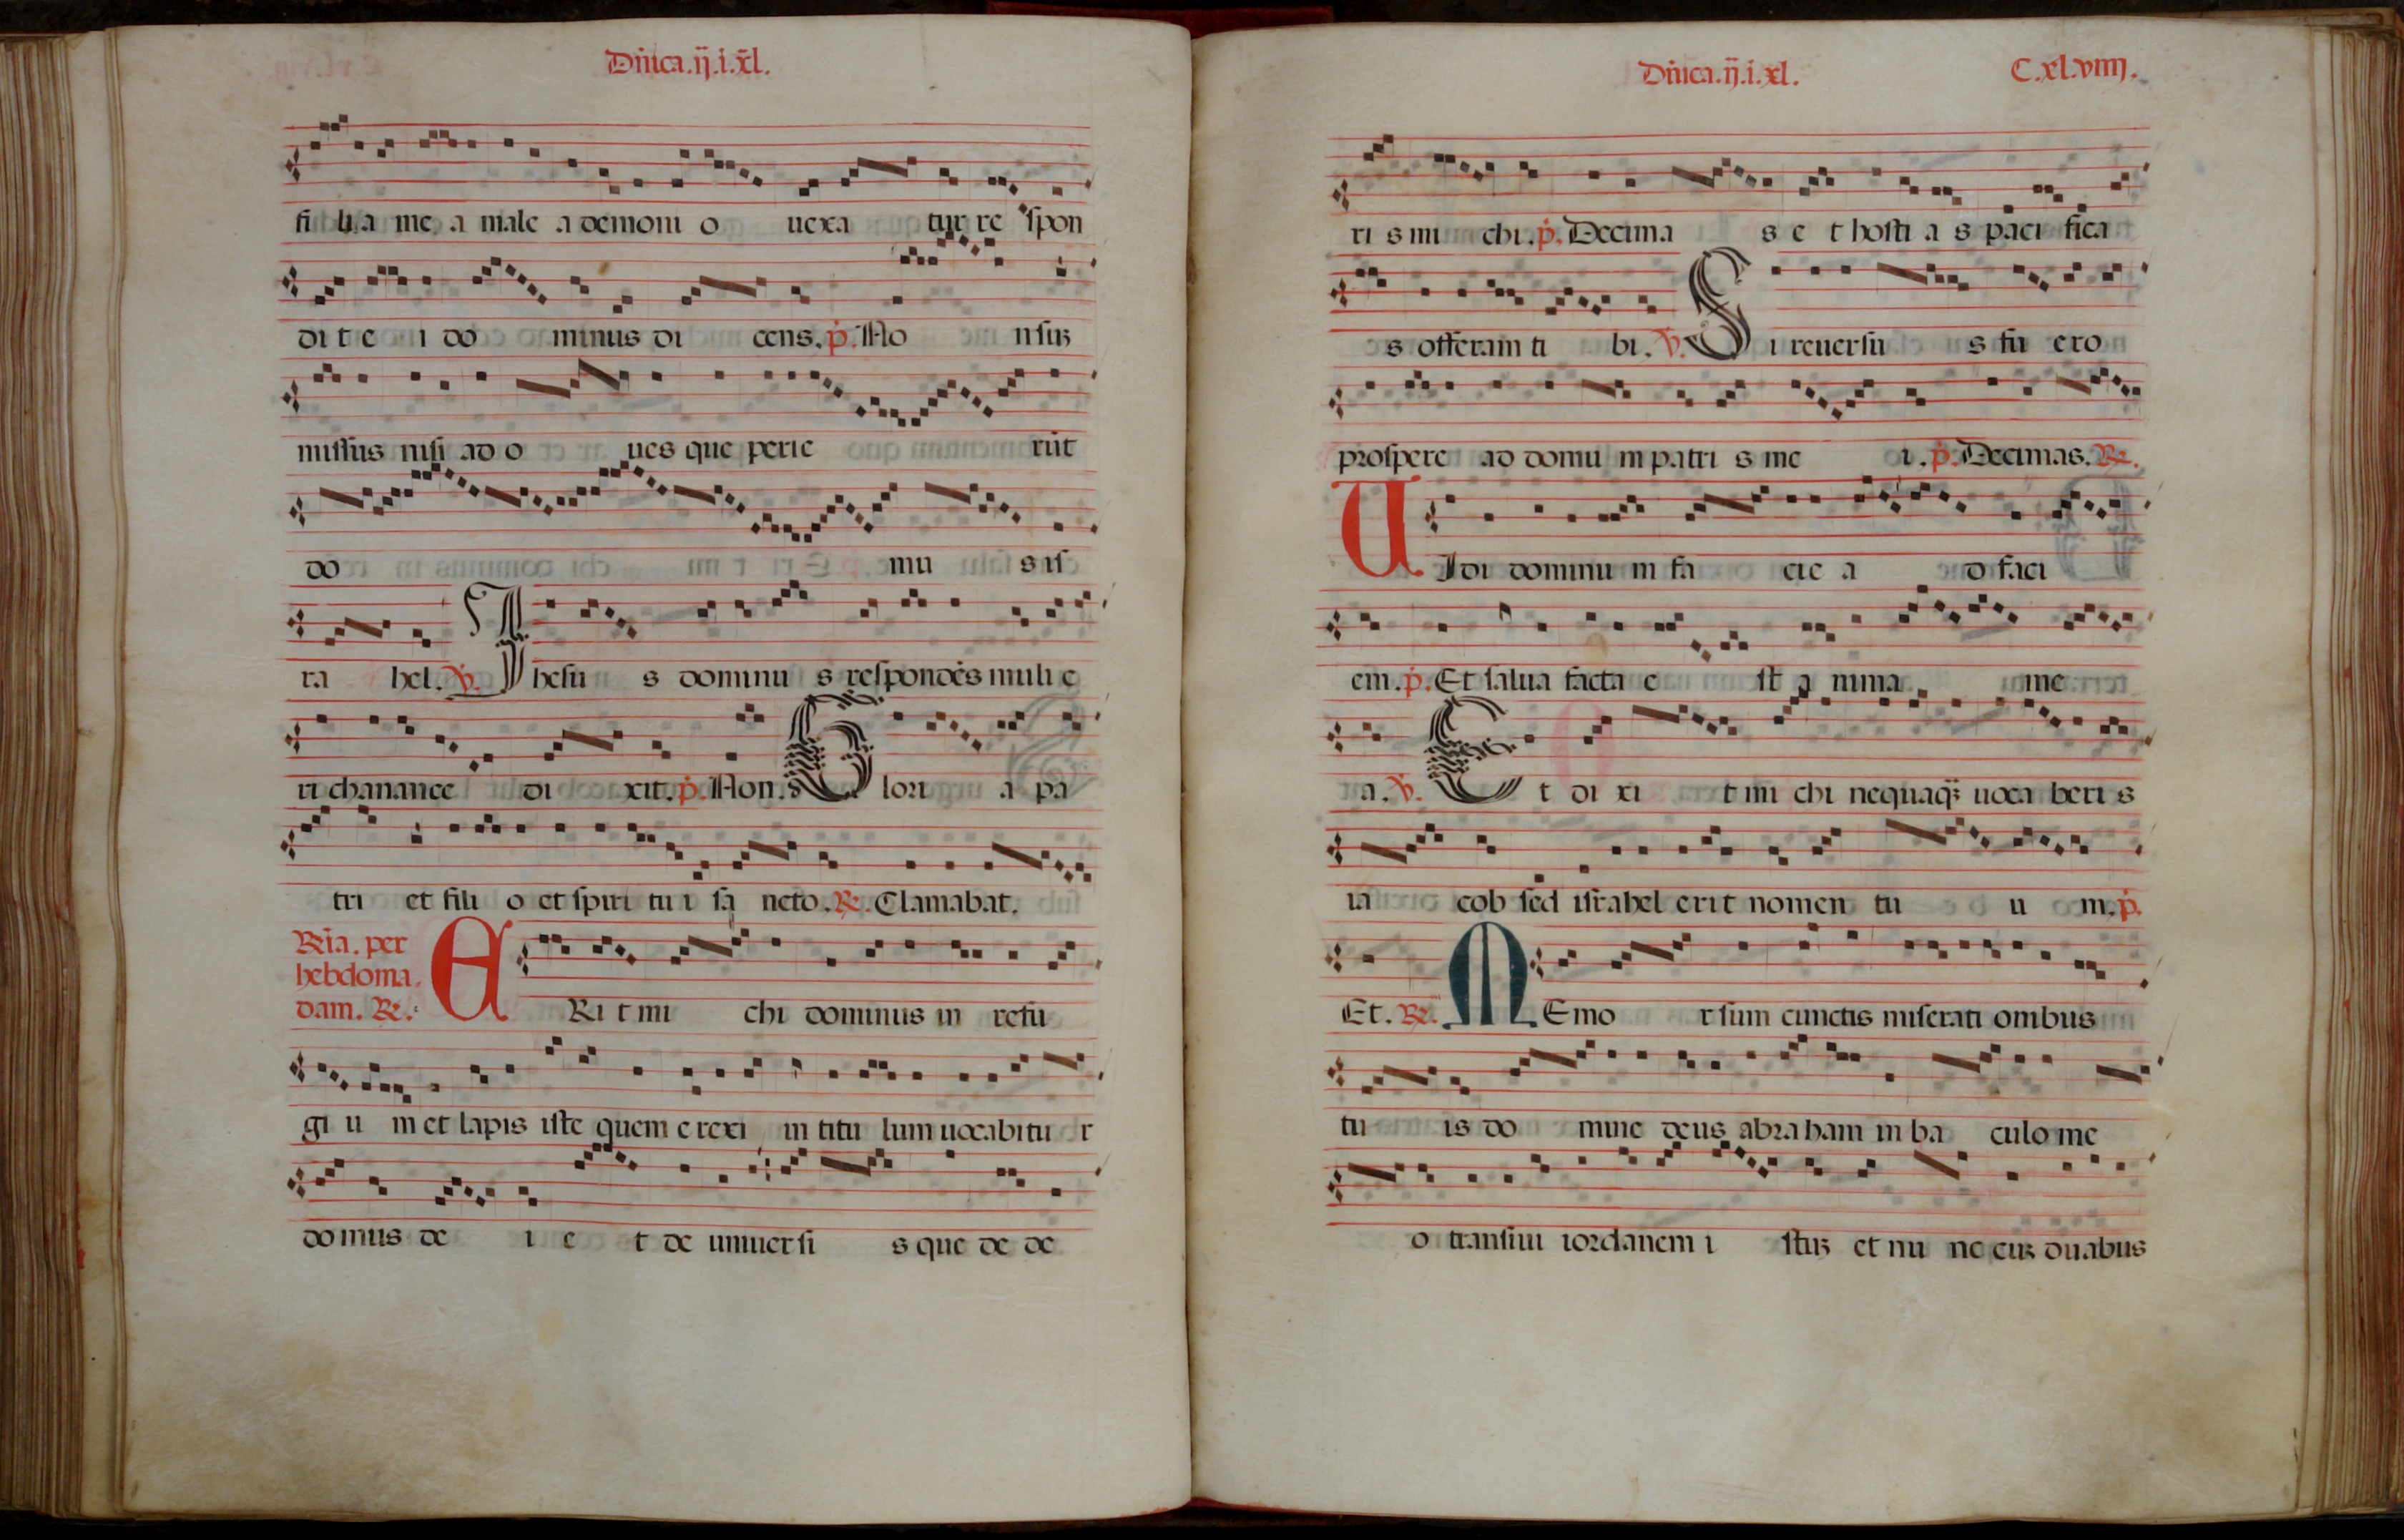 Dñica.ij.i.xl.
fi li a me a male a demoni o uexa tur re spon
di t e i do minus di cens. p. No nsuꝫ
missus nisi ad o ues que perie rūt
do mu s is
ra hel. v. Ihesu s dominu s respondēs muli e
ri chananee di xit. p. Non. Glori a pa
tri et fili o et spiri tu i sa ncto. R. Clamabat.
Rīa. per
hebdoma
dam. R.
ERi t mi chi dominus in refu
gi u m et lapis iste quem e rexi in titu lum uocabitu r
do mus de i e t de uniuer si s que de de
Dñica.ij.i.xl.
C.xl.viiij.
ri s mi chi. p. Decima s e t hosti a s paci fica
s offeram ti bi. v. Si reuersu s fu ero
prospere ad domu m patri s me i. p. Decimas. R.
UIdi dominu m fa cie a d faci
em. p. Et salua facta e st a nima me
a. v. Et di xi t mi chi nequaq̃ uoca beri s
ia cob sed israhel erit nomen tu u m. p.
Et. R. MEmo r sum cunctis miserati onibus
tu is do mine deus abraham in ba culo me
o transiui iordanem i stuꝫ et nu nc cuꝫ duabus